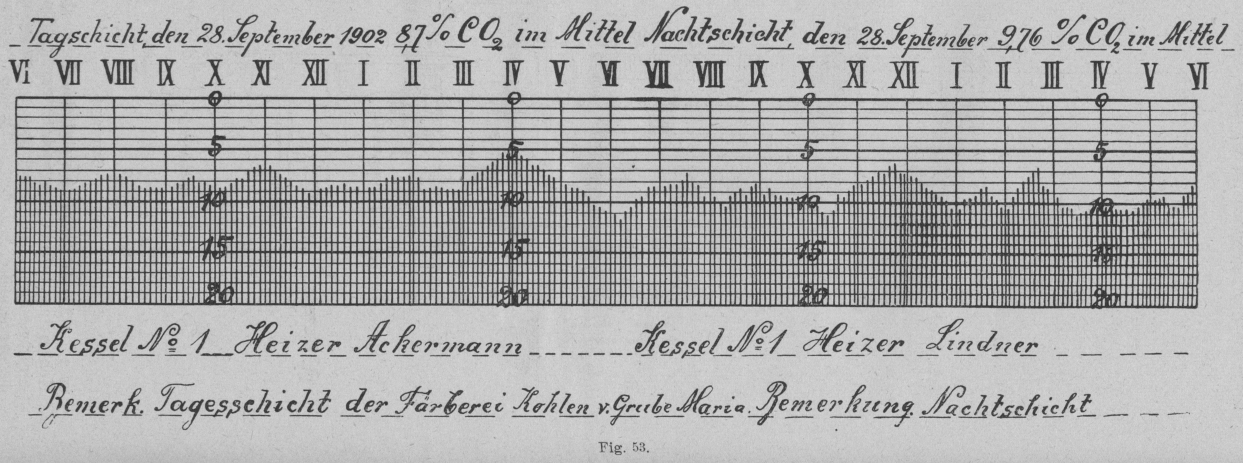 Tagschicht, den 28. September 1902 8,7 % CO₂ im Mittel Nachtschicht, den 28. September 9,76 % CO₂ im Mittel
VI VII VIII IX X XI XII I II III IV V VI VII VIII IX X XI XII I II III IV V VI
0 0 0 0
5 5 5 5
10 10 10 10
15 15 15 15
20 20 20 20
Kessel Nº 1 Heizer Ackermann Kessel Nº 1 Heizer Lindner
Bemerk. Tagesschicht der Färberei Kohlen v. Grube Maria. Bemerkung. Nachtschicht
Fig. 53.